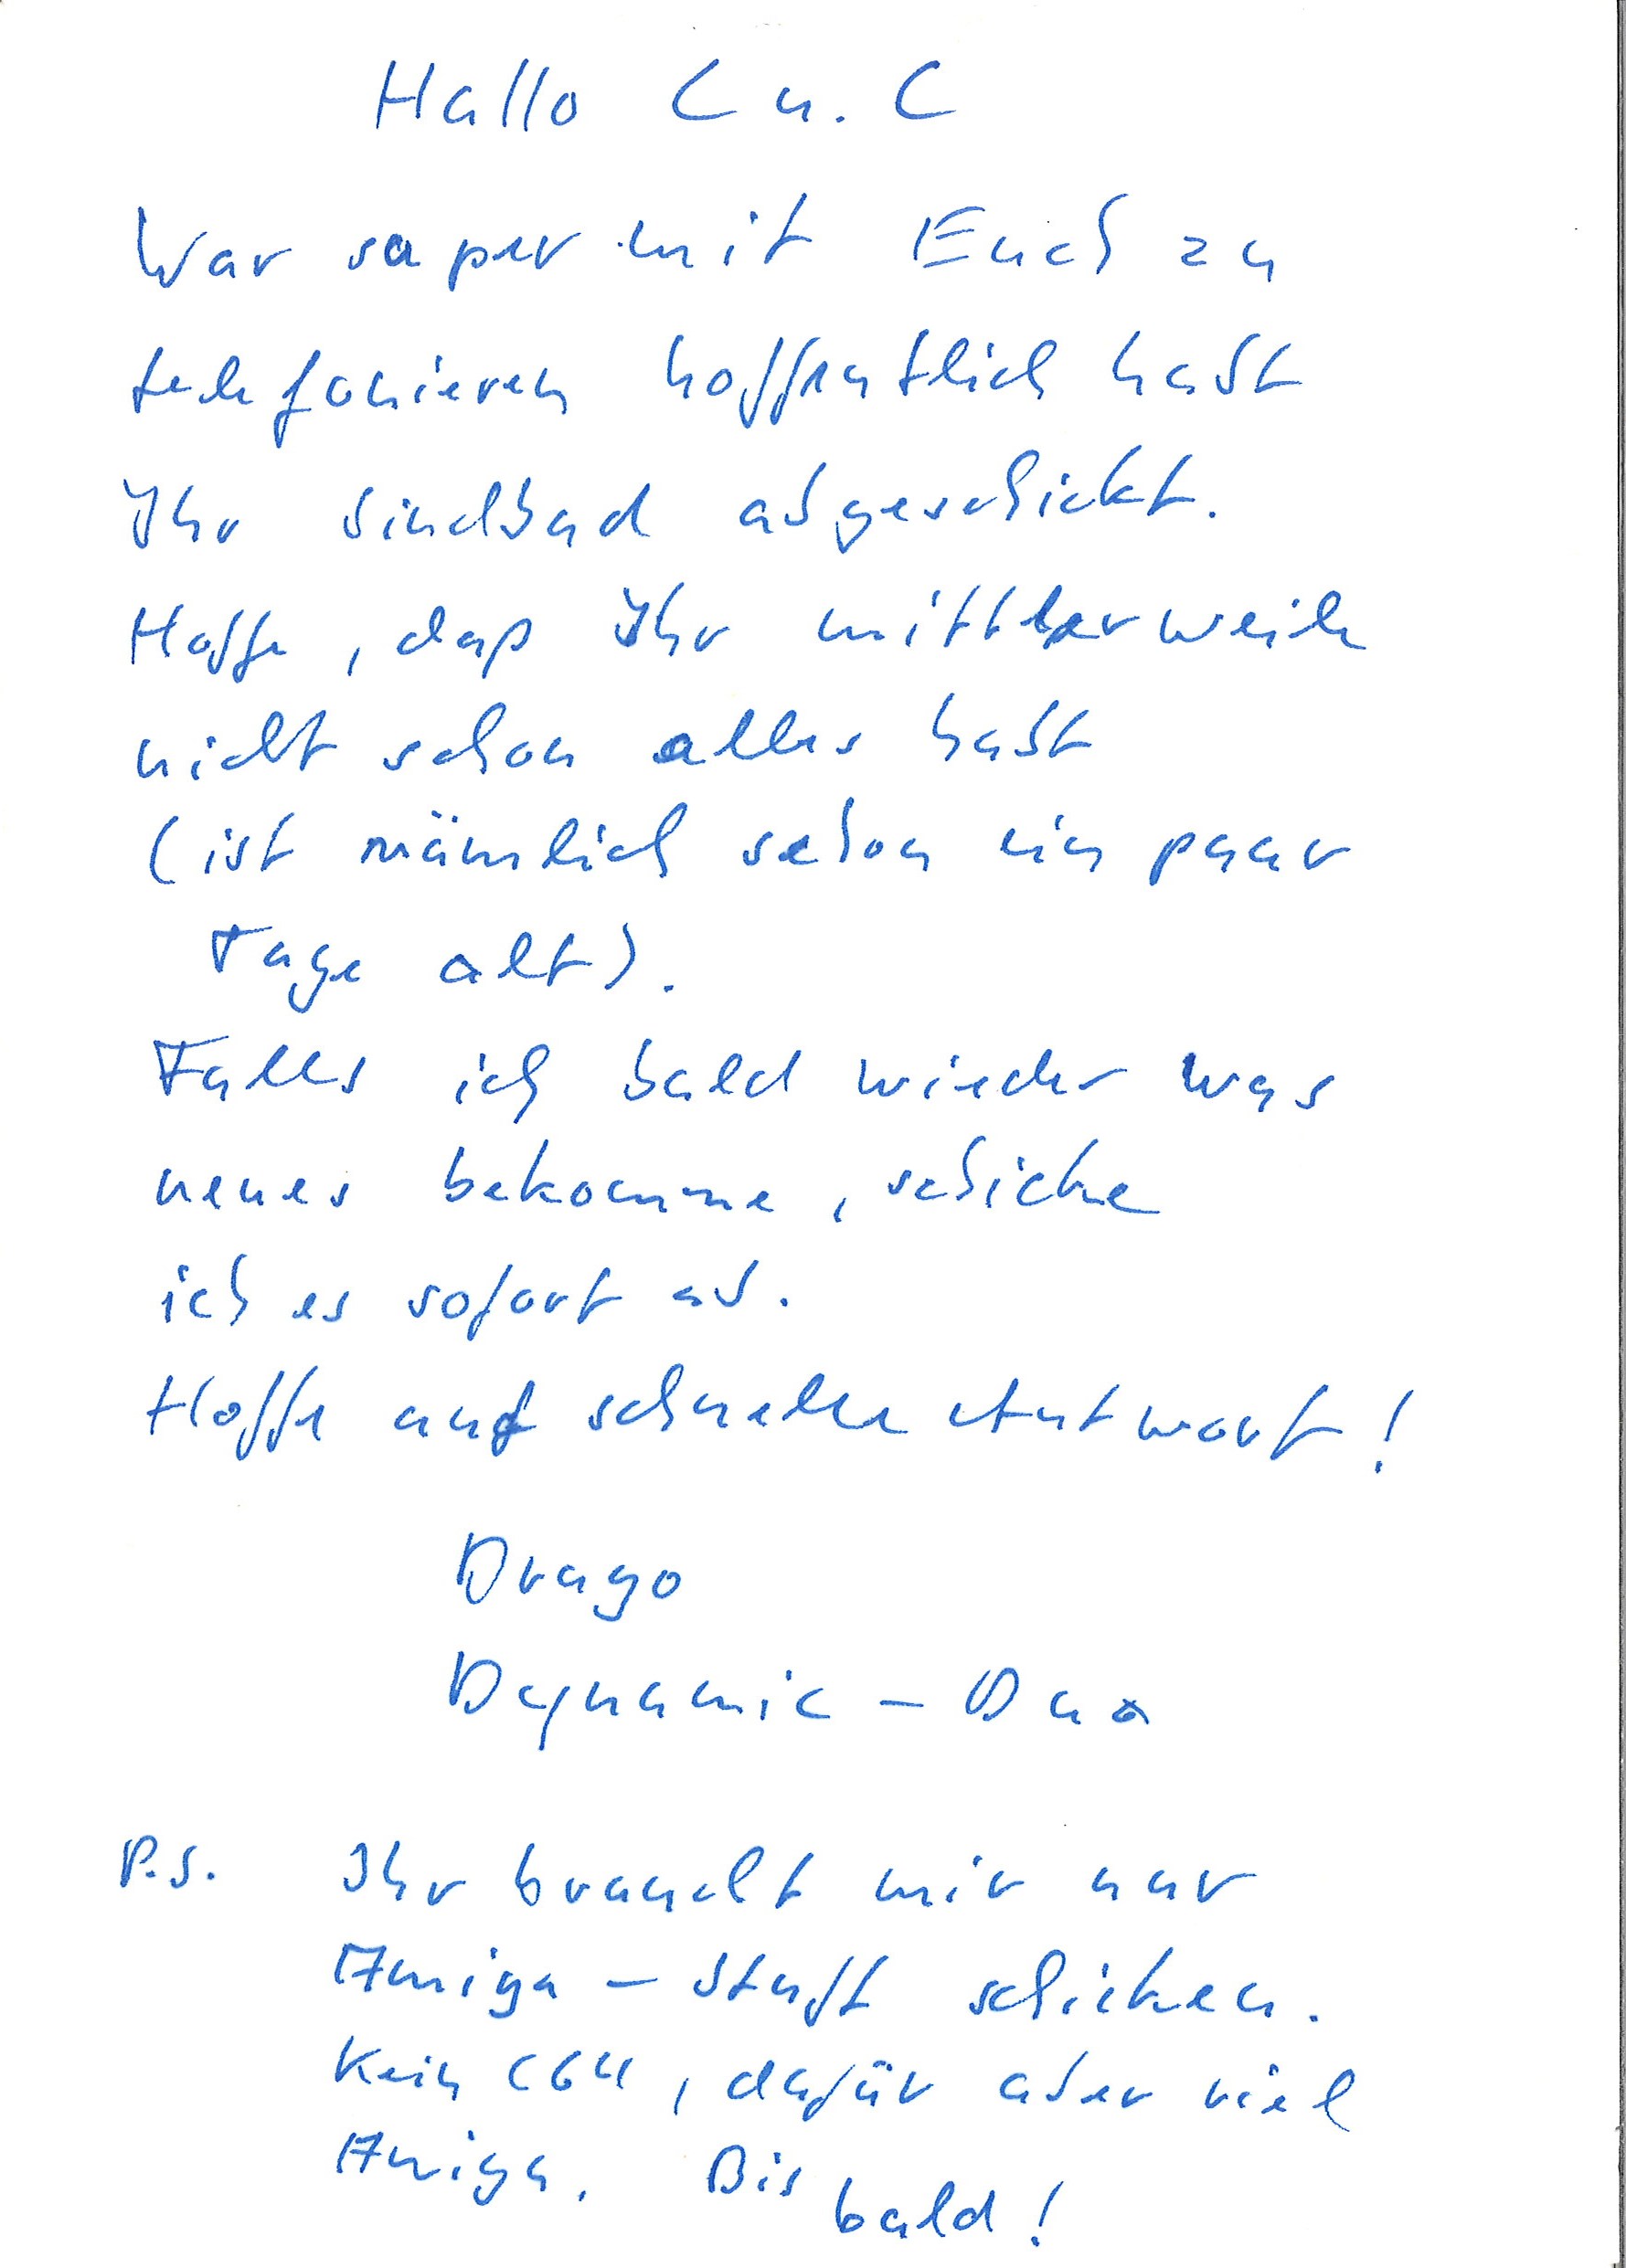 Hallo C u. C
War super mit Euch zu
telefonieren hoffentlich habt
Ihr Sindbad abgeschickt.
Hoffe, daß Ihr mittlerweile
nicht schon alles habt
(ist nämlich schon ein paar
Tage alt).
Falls ich bald wieder was
neues bekomme, schicke
ich es sofort ab.
Hoffe auf schnelle Antwort!
Drago
Dynamic - Duo
P.S. Ihr braucht mir nur
Amiga - Stuff schicken.
Kein C64, dafür aber viel
Amiga. Bis bald!